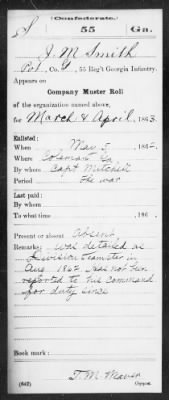 (Confederate.)
S 55 Ga.
J. M. Smith
Pvt, Co. G, 55 Reg't Georgia Infantry.
Appears on
Company Muster Roll
of the organization named above,
for March & April, 1863.
Enlisted:
When May 5, 1862.
Where Ga
By whom Capt Mitchell
Period the war
Last paid:
By whom
To what time , 186 .
Present or absent Absent
Remarks: Was detailed as
Division teamster in
Aug 1862 has not been
reported to his command
for duty since
Book mark:
(642) Copyist.